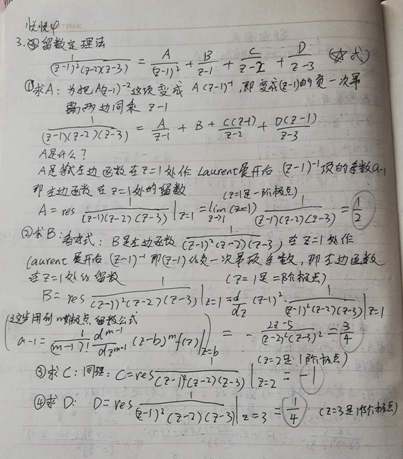 3.④留数定理法
1/((z-1)²(z-2)(z-3)) = A/(z-1)² + B/(z-1) + C/(z-2) + D/(z-3)
①求A: 为把A(z-1)⁻²这项变成A(z-1)⁻¹,即变成(z-1)的负一次幂
需两边同乘 z-1
1/((z-1)(z-2)(z-3)) = A/(z-1) + B + C(z-1)/(z-2) + D(z-1)/(z-3)
A是什么?
A是就左边函数在z=1处作Laurent展开后(z-1)⁻¹项的系数a₋₁
即左边函数在z=1处的留数
(z=1是一阶极点)
A = res 1/((z-1)(z-2)(z-3))|z=1 = lim z→1 (z-1) 1/((z-1)(z-2)(z-3)) = 1/2
②求B: 看 式: B是左边函数 1/((z-1)²(z-2)(z-3)) 在z=1处作
Laurent展开后(z-1)⁻¹即(z-1)的负一次幂项系数,即左边函数
在z=1处的留数 (z=1是二阶极点)
B = res 1/((z-1)²(z-2)(z-3))|z=1 = d/dz (z-1)² · 1/((z-1)²(z-2)(z-3))|z=1
(这里用到m阶极点留数公式
a₋₁ = 1/(m-1)! d^(m-1)/dz^(m-1) (z-b)^m f(z)|z=b) = - (2z-5)/((z-2)²(z-3)²) = 3/4
③求C: 同理: C = res 1/((z-1)²(z-2)(z-3))|z=2 = -1 (z=2是1阶极点)
④求D: D = res 1/((z-1)²(z-2)(z-3))|z=3 = 1/4 (z=3是1阶极点)